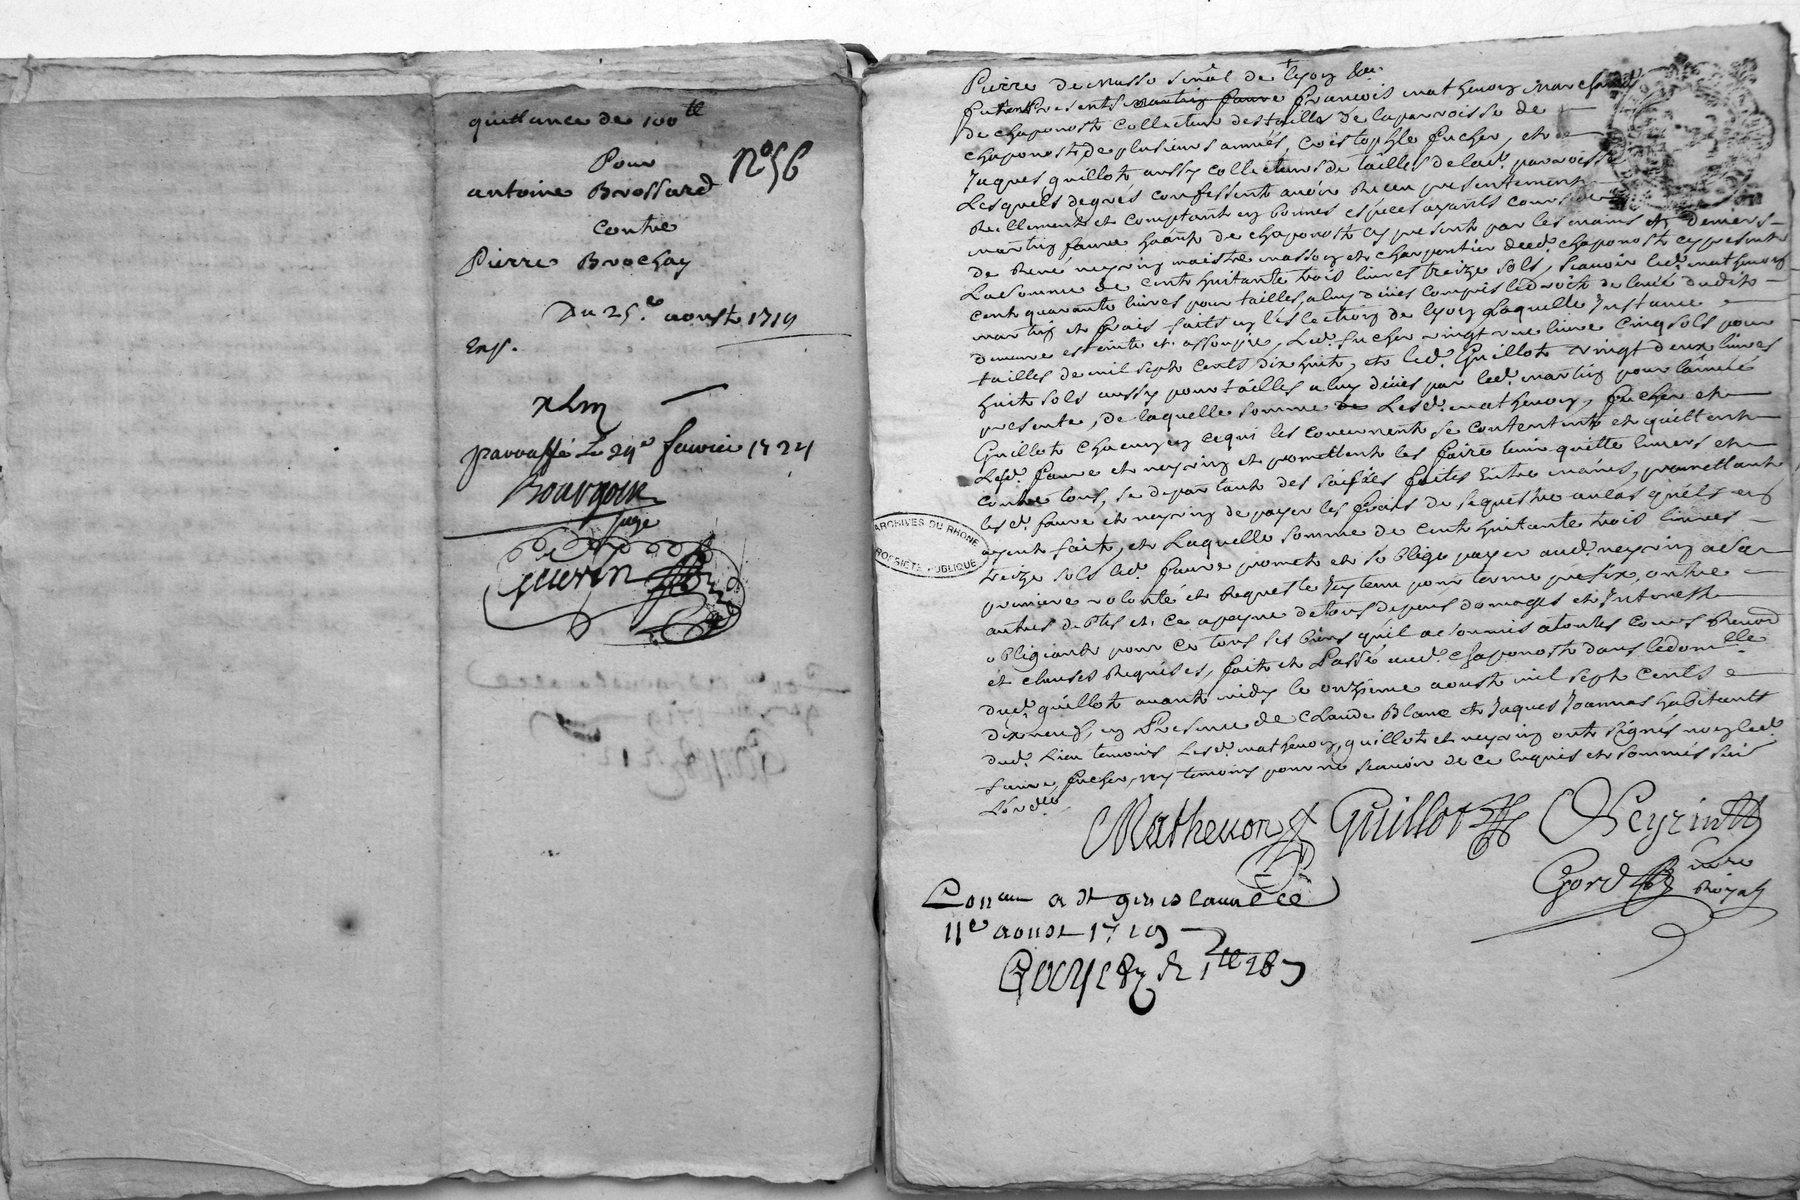 quittance de 100ᵗᵗ
Pour
N° 56
antoine Brossard
contre
Pierre Brochay
Du 25ᵉ aoust 1719
Exp.
parraffé Le 29ᵉ feuvrier 1724
Bourgoin
juge
guerin
Pierre de masso senal de lyon &a
furent Presents martin faure francois mathevon marchand
de chaponost collecteur des tailles de la parroisse de
chaponost de plusieurs années, cristophle fucher, et
Jaques guillot aussy collecteurs de tailles de lad. parroisse
Lesquels de grés confessent avoir receu presentement
reellement et comptant en bonnes espèces ayants cours de
martin faure habt. de chaponost cy present par les mains et deniers
de René neyrin maistre masson et charpentier dud. chaponost cy present
La somme de cent huitante trois livres treize sols, scavoir led. mathevon
cent quarante livres pour tailles a luy düés compris le droit de levée dudit
martin et frais faits en l'eslection de lyon laquelle Instance
demeure esteinte et assoupie, Led. fucher vingt une livre cinq sols pour
tailles de mil sept cents dix huit, et led. Guillot vingt deux livres
huit sols aussy pour tailles a luy düés par led. martin pour l'année
presente, de laquelle somme Lesd. mathevon, fucher et
Guillot chacun en ce qui les concernent se contentent et quittent
Lesd. faure et neyrin et promettent les faire tenir quitte envers et
contre tous, se departant des saisies faites entre mains, promettant
lesd. faure et neyrin de payer les frais de sequestre au cas qu'els en
ayent fait, et Laquelle somme de cent huitante trois livres
treize sols led. faure promet et s'oblige payer aud. neyrin a sa
premiere volonté et requeste Icy tenu pour terme prefix, outre
autres debtes et ce a peyne de tous depens domages et Interest
obligeant pour ce tous ses biens qu'il a soumis a toutes cours renond
et clauses requises, fait et Passé aud. chaponost dans le domlle
dud. guillot avant midy le onzieme aoust mil sept cents
dix neuf, en Presence de claude Blanc et Jaques Joannas habitants
dud. Lieu temoins Lesd. mathevon, guillot et neyrin ont signés non led.
faure, fucher, ny temoins pour ne scavoir de ce enquis et sommés suiv
L'ordce
Mathevon Guillot Neyrin
Gord nore
Royal
Con au a St genis laval ce
11e aoust 1719
ARCHIVES DU RHONE
PROPRIETE PUBLIQUE